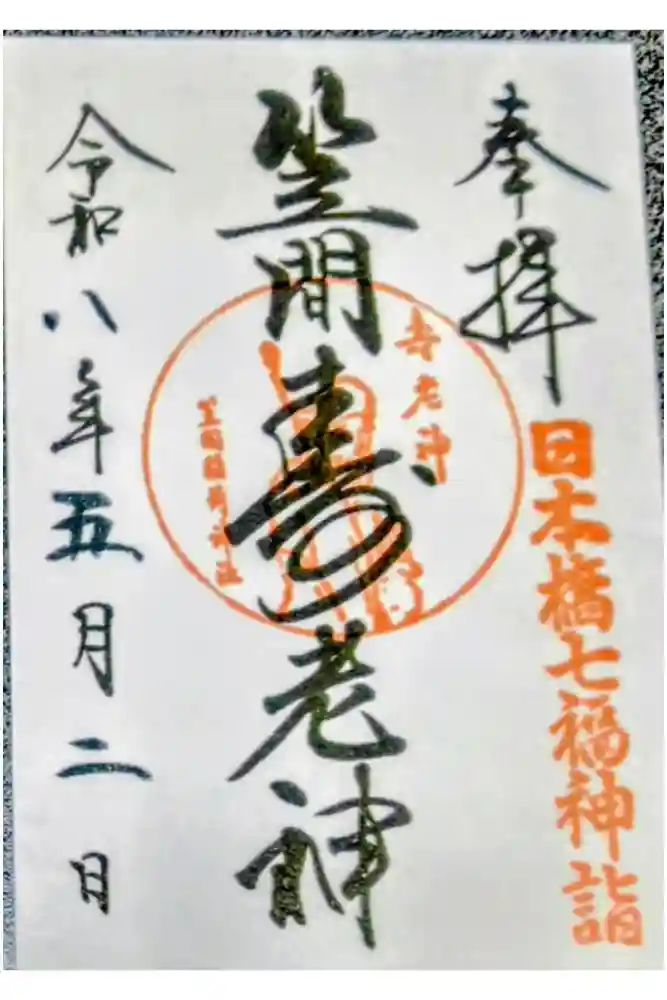 奉拝
日本橋七福神詣
笠間寿老神
寿老神
笠間稲荷神社
令和八年五月二日